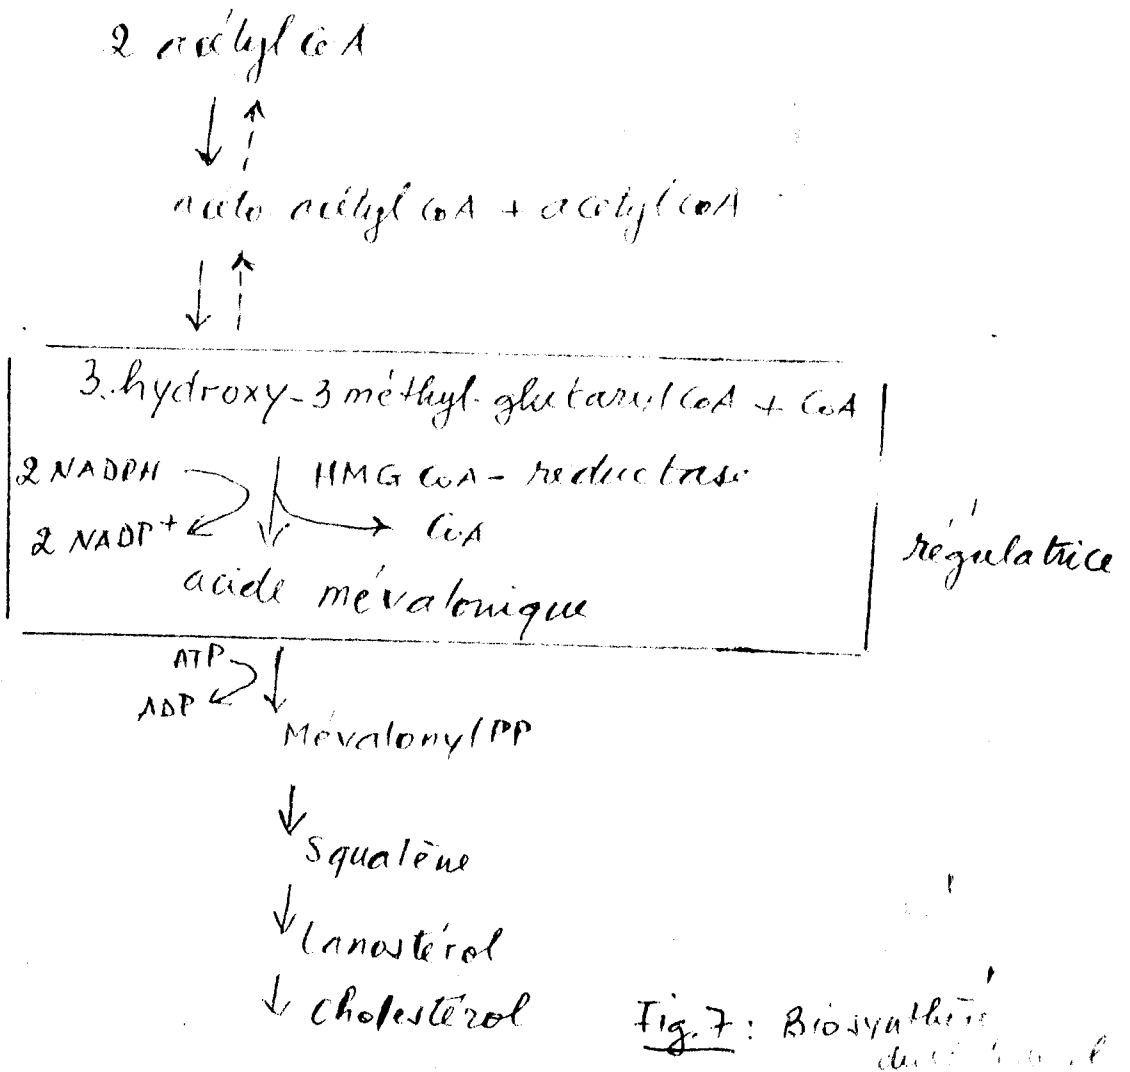 2 acétyl CoA
acéto acétyl CoA + acetyl CoA
3.hydroxy-3 méthyl-glutaryl CoA + CoA
2 NADPH HMG CoA-reductase
2 NADP+ CoA
régulatrice
acide mévalonique
ATP
ADP
Mévalonyl PP
Squalène
Lanostérol
cholestérol
Fig.7: Biosynthèse